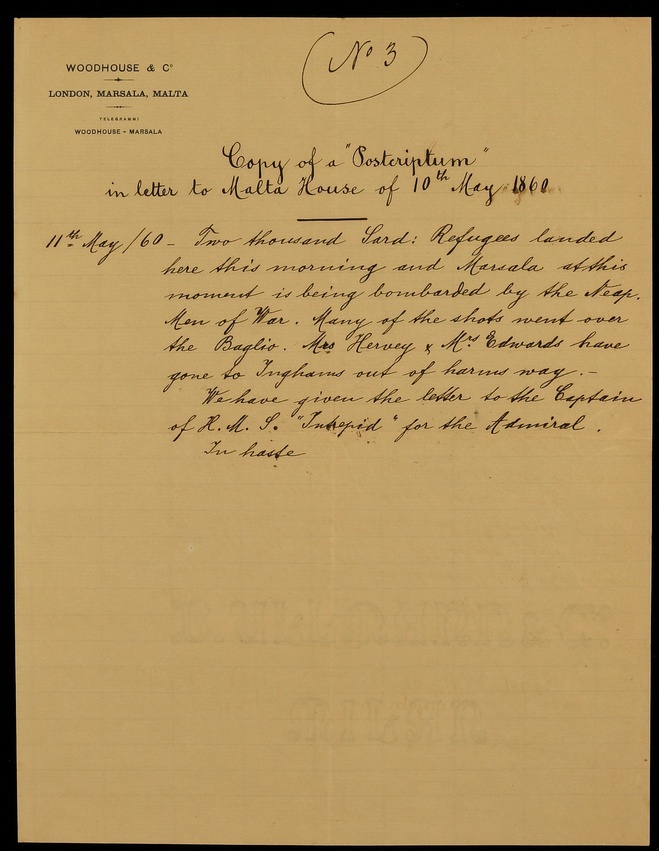 (No 3)
WOODHOUSE & Co
LONDON, MARSALA, MALTA
TELEGRAMMI
WOODHOUSE - MARSALA
Copy of a "Postcriptum"
in letter to Malta House of 10th May 1860
11th May /60 - Two thousand Sard: Refugees landed
here this morning and Marsala at this
moment is being bombarded by the Neap.
Men of War. Many of the shots went over
the Baglio. Mrs Hervey & Mrs Edwards have
gone to Inghams out of harms way. -
We have given the letter to the Captain
of H. M. S. "Intrepid" for the Admiral.
In haste